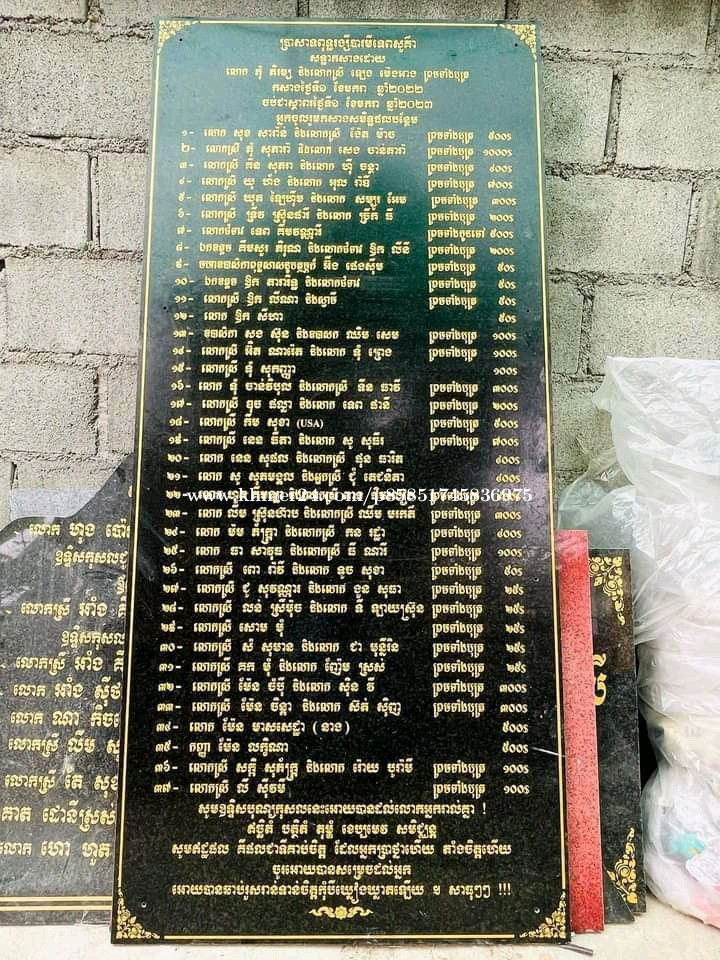 ប្រាសាទពុទ្ធរង្សីបារមីទេពសូភា
សទ្ធាកសាងដោយ
លោក ភុំ ភិរម្យ និងលោកស្រី ឡេង ម៉េងអាង ព្រមទាំងបុត្រ
កសាងថ្ងៃទី១ ខែមករា ឆ្នាំ២០២២
ចប់ជាស្ថាពរថ្ងៃទី១ ខែមករា ឆ្នាំ២០២៣
អ្នកចូលរួមកសាងសមិទ្ធផលបន្ថែម
១- លោក សុខ សារ៉ាន់ និងលោកស្រី ង៉ែត ម៉ាច ព្រមទាំងបុត្រ ៥០០$
២- លោកស្រី ភុំ សុភារ៉ា និងលោក សេង ចាន់តារ៉ា ព្រមទាំងបុត្រ ១០០០$
៣- លោកស្រី គិន សុភារា និងលោក ហ៊ី ចន្ថា ព្រមទាំងបុត្រ ៤០០$
៤- លោកស្រី យូ ហ៊ាង និងលោក អុល រ៉ាឌី ព្រមទាំងបុត្រ ៧០០$
៥- លោកស្រី យូត ឡៃហ៊ីម និងលោក សម្បូរ អែម ព្រមទាំងបុត្រ ៣០០$
៦- លោកស្រី ទ្រីវ ស្រ៊ុនផារី និងលោក ទ្រីក ធី ព្រមទាំងបុត្រ ២០០$
៧- លោកជំទាវ ទេព គឹមវណ្ណារី ព្រមទាំងកូនចៅ ៥០០$
៨- ឯកឧត្តម គឹមសួរ ភិរុណ និងលោកជំទាវ ឱក លីនី ព្រមទាំងបុត្រ ២០០$
៩- មហាឧបាសិកាពុទ្ធសាសនូបត្ថម្ភក៍ អ៊ឹង ផេងស៊ីម ព្រមទាំងបុត្រ ៥០$
១០- ឯកឧត្តម ឱក តារារិទ្ធ និងលោកជំទាវ ព្រមទាំងបុត្រ ៥០$
១១- លោកស្រី ឱក លីណា និងស្វាមី ព្រមទាំងបុត្រ ៥០$
១២- លោក ឱក សីហា ៥០$
១៣- ឧបាសិកា សង ស៊ីន និងឧបាសក ឈឹម សេម ព្រមទាំងបុត្រ ១០០$
១៤- លោកស្រី អ៊ិត ណារ៉ែត និងលោក ទុំ ព្រេង ព្រមទាំងបុត្រ ១០០$
១៥- លោកស្រី ទុំ សុកញ្ញា ១០០$
១៦- លោក ទុំ ចាន់វិបុល និងលោកស្រី ទីន ធាវី ព្រមទាំងបុត្រ ៣០០$
១៧- លោកស្រី ទូច ផល្លា និងលោក ទេព ផានី ព្រមទាំងបុត្រ ២០០$
១៨- លោកស្រី កឹម សុខា (USA) ព្រមទាំងបុត្រ ៥០០$
១៩- លោកស្រី នេន ធីតា និងលោក សូ សុធីរ ព្រមទាំងបុត្រ ៧០០$
២០- លោក នេន សុផល និងលោកស្រី ផុន ធារ៉ែត ៤០០$
២១- លោក សូ សុភមង្គល និងអ្នកស្រី ជុំ តេជនិតា ៤០០$
www.khmer24.com/u-85851745836975
២៣- លោក លឹម ស្រ៊ុនហ៊ាម និងលោកស្រី ឈឹម មករតី ព្រមទាំងបុត្រ ៣០០$
២៤- លោក ម៉ម ភ័ក្ត្រា និងលោកស្រី កន រដ្ឋា ព្រមទាំងបុត្រ ៤០០$
២៥- លោក ធា សាវុធ និងលោកស្រី ធី ណារី ព្រមទាំងបុត្រ ១០០$
២៦- លោកស្រី ពៅ រ៉ាវី និងលោក ទូច សុខា ព្រមទាំងបុត្រ ៥០$
២៧- លោកស្រី ជូ សុវណ្ណារ និងលោក ងួន សុធា ព្រមទាំងបុត្រ ២៥$
២៨- លោកស្រី លន់ ស្រីម៉ុច និងលោក ទី ឡាយស្រ៊ុន ព្រមទាំងបុត្រ ២៥$
២៩- លោកស្រី សោម មុំ ព្រមទាំងបុត្រ ២៥$
៣០- លោកស្រី សំ សុមាន និងលោក ជា មុន្នីរ័ន ព្រមទាំងបុត្រ ២៥$
៣១- លោកស្រី គក មុំ និងលោក ញ៉ែម ស្រស់ ព្រមទាំងបុត្រ ២៥$
៣២- លោកស្រី ម៉ែន ចំប៉ី និងលោក ស៊ិន វី ព្រមទាំងបុត្រ ៣០០$
៣៣- លោកស្រី ម៉ែន ច័ន្ថា និងលោក ស៊ត់ ស៊ិញ ព្រមទាំងបុត្រ ៣០០$
៣៤- លោក ម៉ែន មាសសេដ្ឋា ( នាង ) ៥០០$
៣៥- កញ្ញា ម៉ែន លក្ខិណា ៥០០$
៣៦- លោកស្រី សក្តិ សុភ័ក្ត្រ និងលោក រ៉ោយ បូរ៉ាមី ព្រមទាំងបុត្រ ១០០$
៣៧- លោកស្រី លី ស៊ីវមី ព្រមទាំងបុត្រ ១០០$
សូមឧទ្ទិសបុណ្យកុសលនេះអោយបានដល់លោកអ្នករាល់គ្នា !
ឥច្ឆិតំ បត្ថិតំ តុម្ហំ ខេប្បមេវ សមិជ្ឈន្តុ
សូមឥដ្ឋផល គឺផលជាទីគាប់ចិត្ត ដែលអ្នកប្រាថ្នាហើយ តាំងចិត្តហើយ
ចូរអោយបានសម្រេចដល់អ្នក
អោយបានឆាប់រួសរាន់ទាន់ចិត្តកុំបីឃ្លៀងឃ្លាតឡើយ ។ សាធុៗៗ !!!
លោក ហុង
ឧទ្ទិសកុសលជូ
លោកស្រី អាំង
ឧទ្ទិសកុសល
លោកស្រី អាំង គិ
លោក អាំង ស៊ីថ
លោក ណា កិច
លោកស្រី លឹម
លោកស្រី តែ សុខ
លោក ហោ ហួត